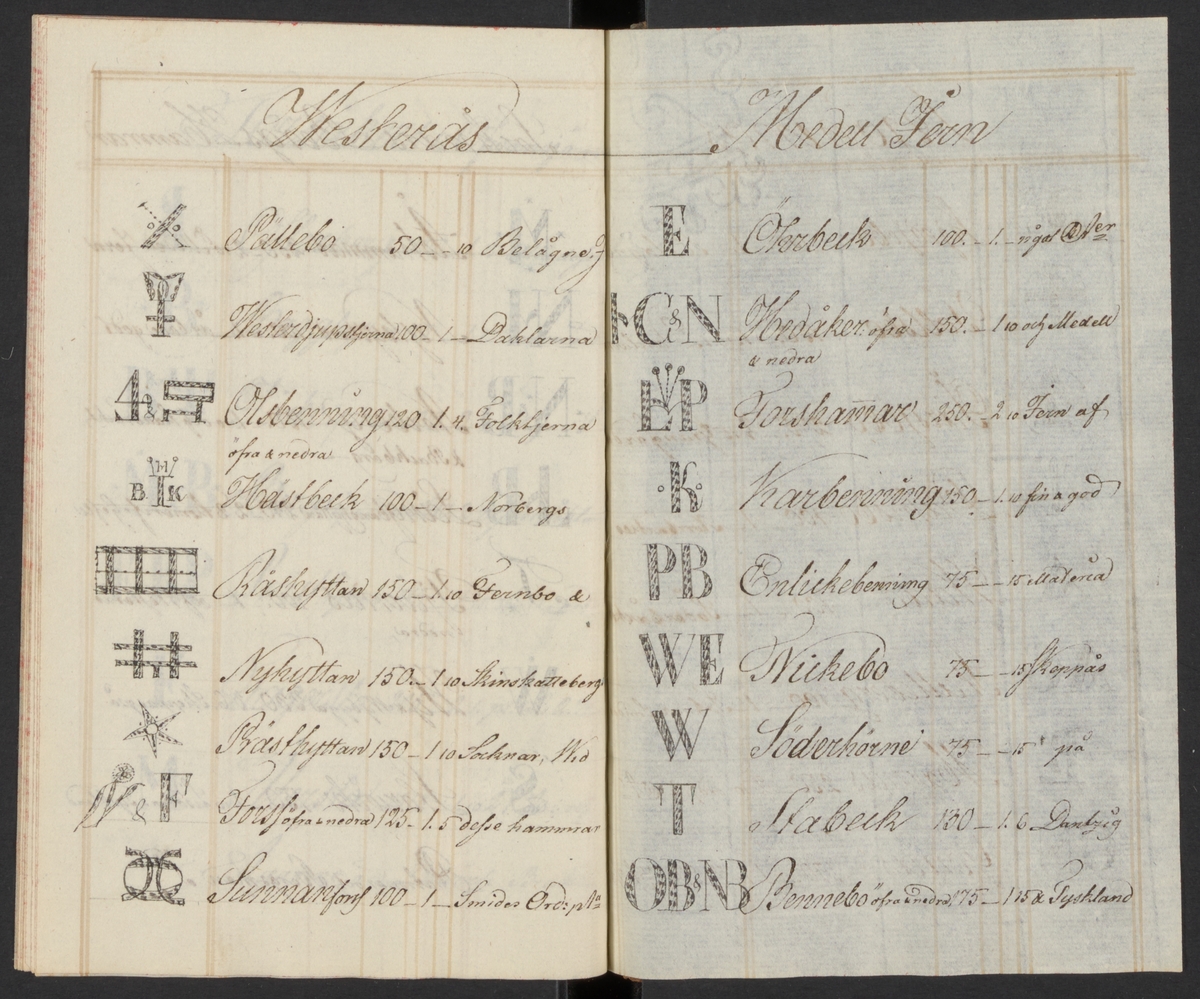 Westerås Medell Jern
Pättebo 50 — — 10 Belägne J
Westerdjupstjerna 100 — 1 — Dahlarna
4 & Olsbenning 120 1. 4. Folktjerna
öfra & nedra
H
B K Hästbeck 100 — 1 — Norbergs
Råshyttan 150 — 1 10 Fernbo &
Nyhyttan 150. — 1 10 Skinskatteberg
Prästhyttan 150 — 1 10 Socknar, Wid
N & F Forss öfra & nedra 125 — 1. 5 desse hammrar
Sunnanforss 100 — 1 — Smides Ord: pltr
E Öferbeck 100. — 1. — något
G & N Hedåker öfra 150. — 1 10 och Medell
& nedra
HP Forshamar 250. — 2 10 Jern af
K Karbenning 150 — 1. 10 fin a god
PB Enlickebenning 75 — — 15 Materia
WE Wickebo 75 — — 15 Skeppås
W Söderhörne 75 — — 15 på
T Stabeck 130 — 1. 6 Dantzig
OB & NB Bennebo öfra & nedra 175 — 1 15 & Tyskland